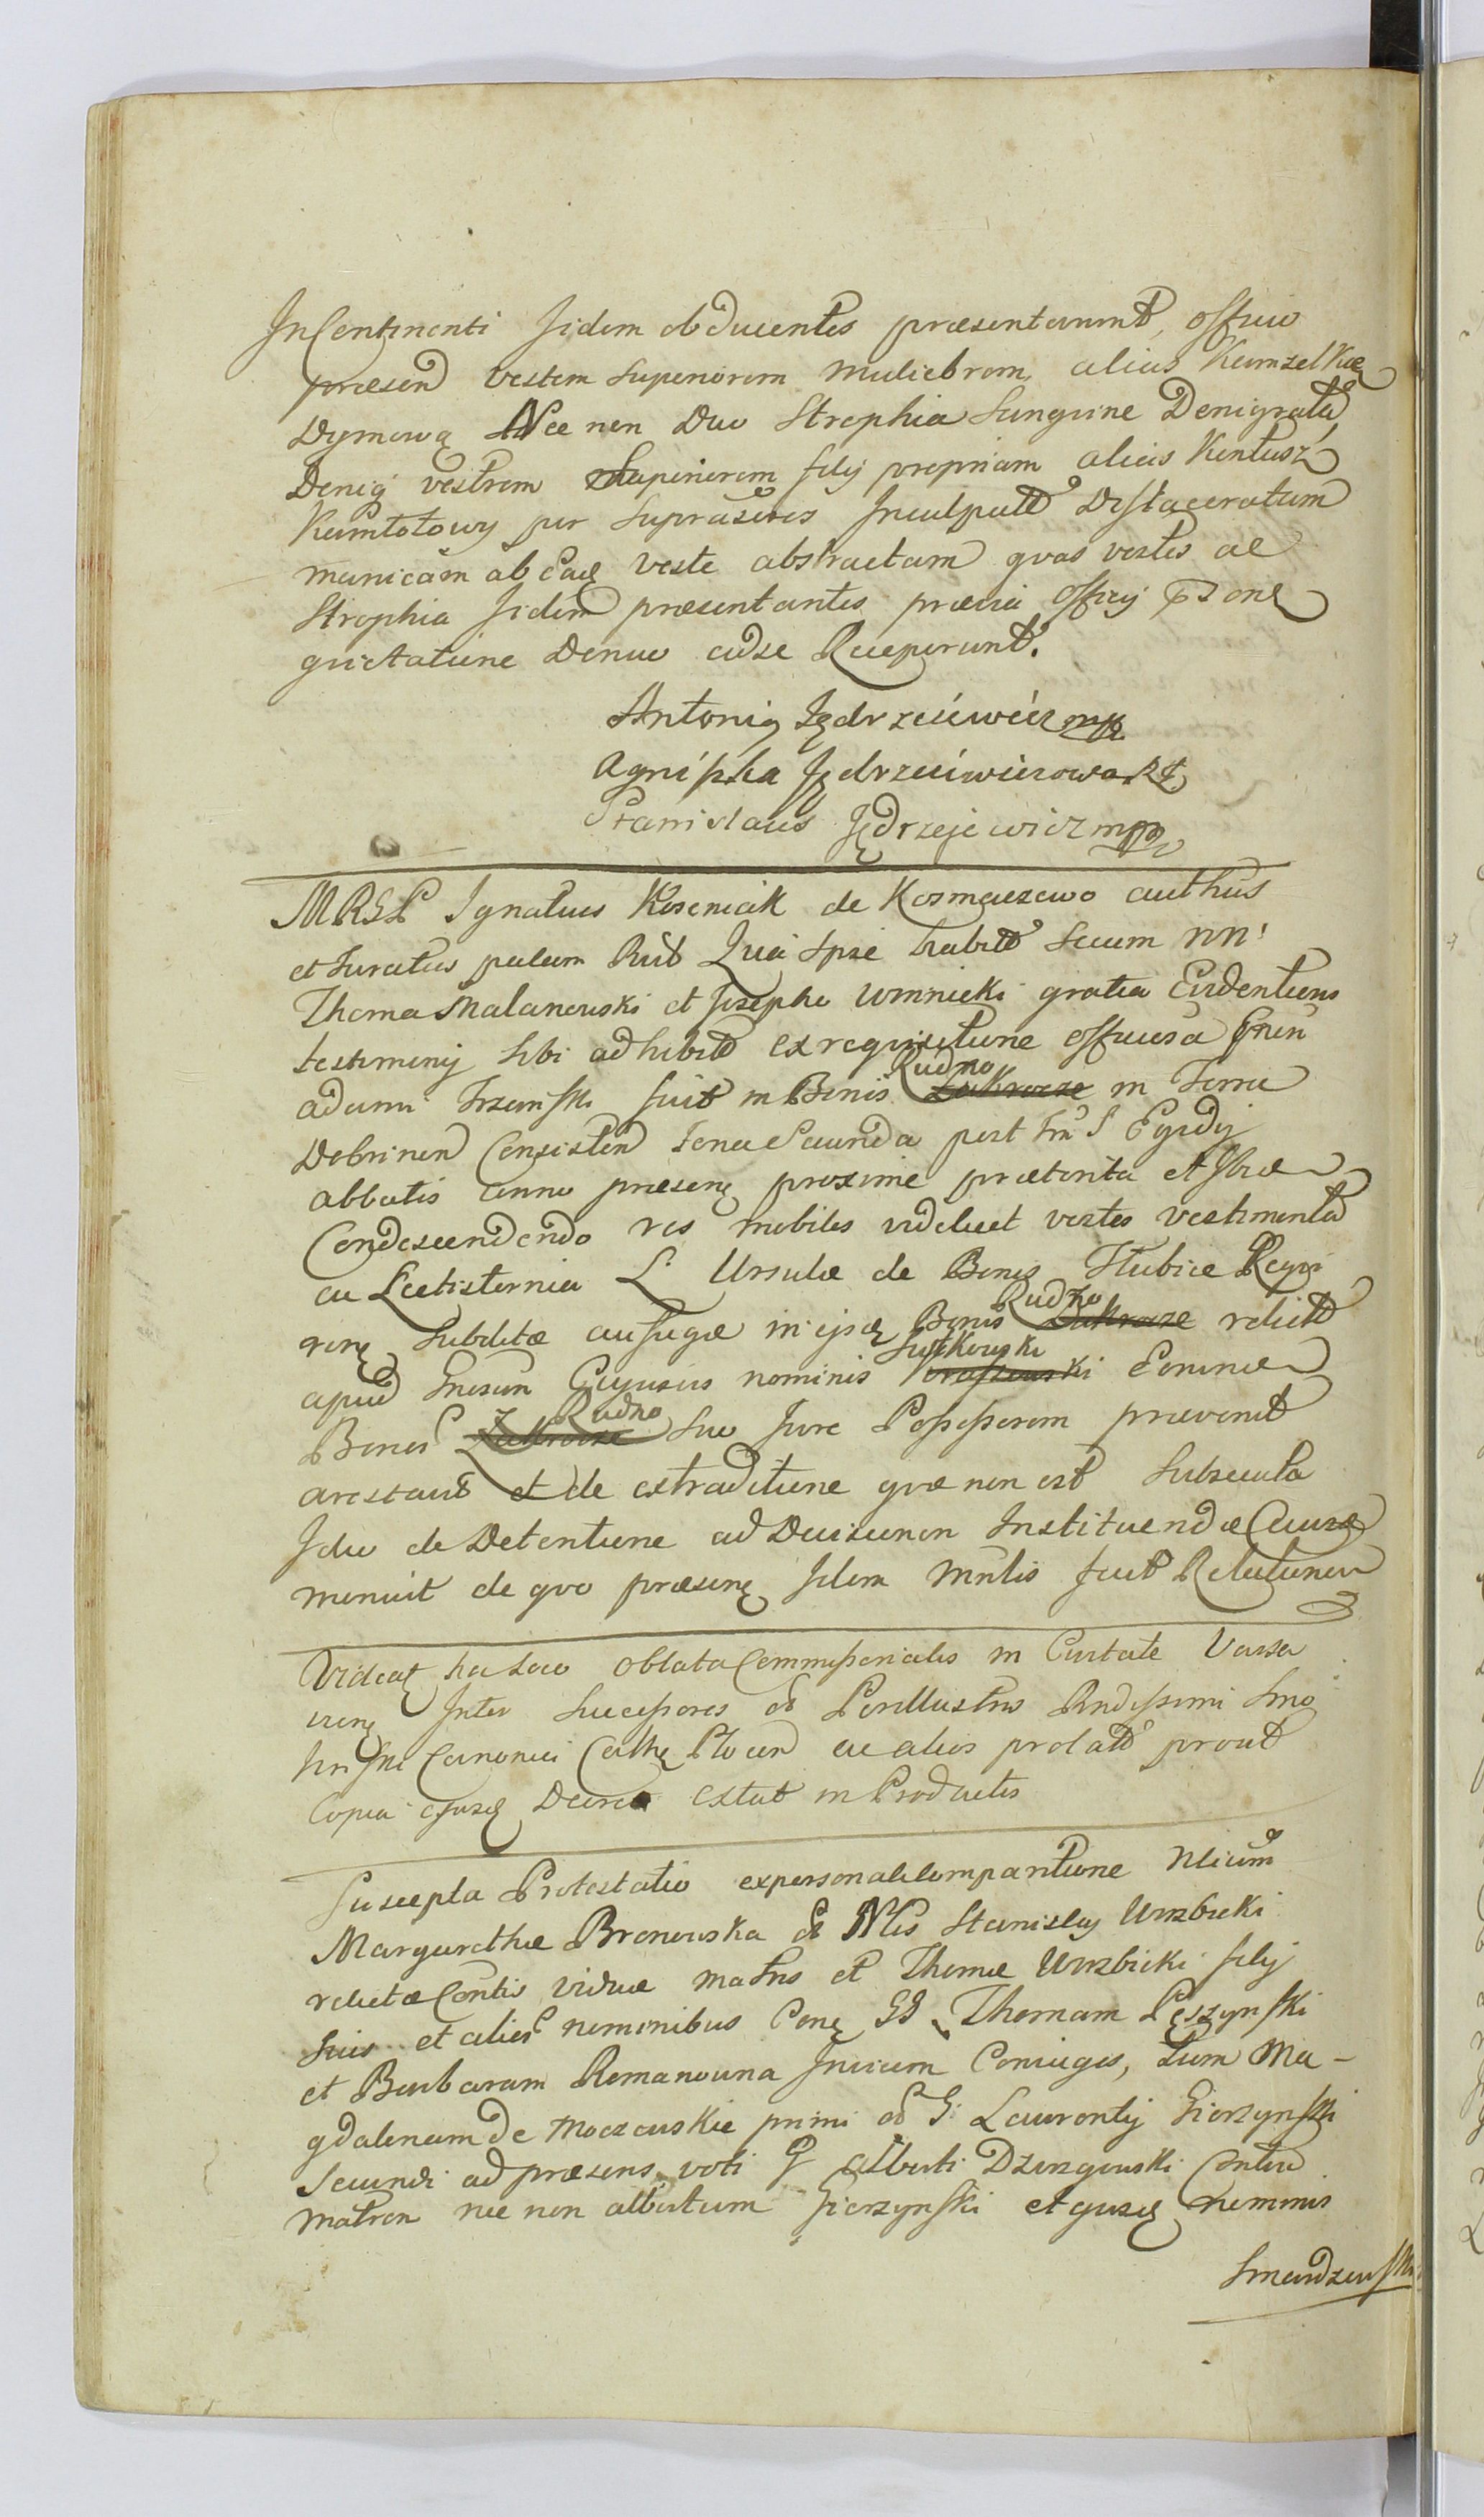 InContinenti Jidem obducentes præsentarunt officio
præsen vestem Superiorem muliebrem alias Kamzelkæ
Dymową Nec non Duo Strophia Sanguine Denigrata
Deniq vestrem Superiorem filij propriam alias Kontusz
Kamlotowy per Suprascros Inculpatt Dislaceratam
manicam ab eadę veste abstractam quas vestes ac
Strophia Jidem præsentantes prævia officij
quietatione Denuo adse Receperunt.
Antoniy Jędrzeiewicz mp
Agnişka Jędrzeiewiczowa
Stanislaus Jędrzejewicz mpp
MRGL Ignatius Koseniak de Kosmaczewo authus
et Juratus palam Rit Quia Ipse habitt Secum NN:
Thoma Malanowski et Josepho Winnicki gratia Evidentiens
testimonij Sibi adhibitt ex requisitione officiosa Gnın
adami Trzcinski fuit in Bonis Rudno Zakrocze in Terra
Dobrinen Consisten feria Secunda post fm S Egidij
abbatis anno præsenę proxime præterita et Ibiæ
Condescendendo res mobiles videlicet vestes vestimenta
ac Lectisternia L. Ursulæ de Bonis Hubice
renę Subditæ aufugæ in ejsdę Bonis Rudno Zakrocze relictt
apud Gnosum Cujusvis nominis Sutkowski Eorumæ
Bonor Rudno Zakrocze suo Jure Possessorem prævenit
arestavit et de extraditione quæ non est Subsecuta
Ideo de Detentione ad Decisionem Instituendæ Causæ
monuit de quo præsenę Idem mnlis fecit Relationem
Videatę hac Loco oblata Commissorialis in Civitate Varsa
vienę Inter Successores ol Perillustris Rndissimi Smo
linski Canonici Cathę Plocen ac alios prolatt prout
Copia ejusdę Decreti extat in Productis
Suscepta Protestatio ex personali Comparitione Nlium
Margarethæ Bronowska ol Nlis Stanislay Wirzbicki
relictæ Contis viduæ matris et Thomæ Wirzbicki filij
suis et alior nominibus Conę GG Thomam Pęszynski
et Barbaram Romanowna Invicem Coniuges, Tum Ma-
gdalenam de Moczewskie primi ol G: Laurentij Gierzynski
Secundi ad præsens voti G alberti Dzierzgowski Conten
matron nec non albertum Gierzynski et ejusdę nominis
Smardzewski